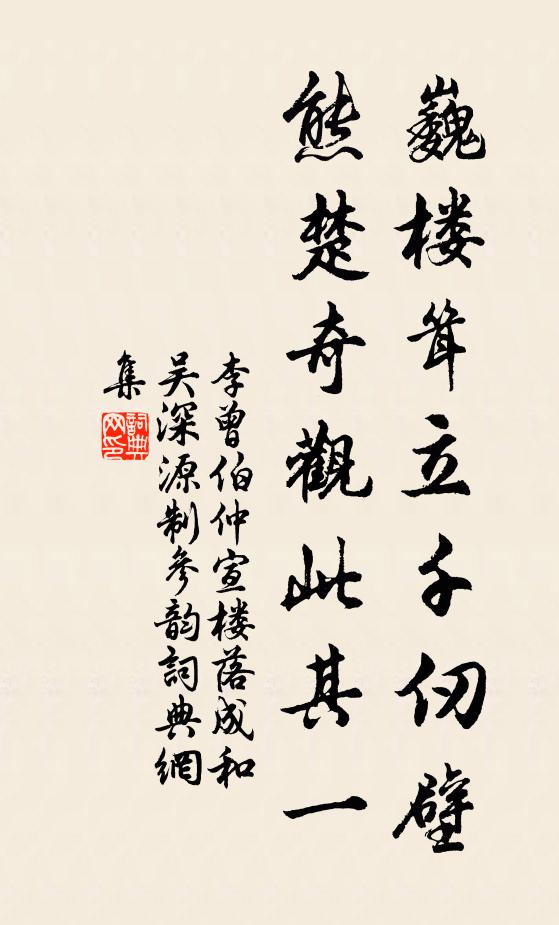 巍楼耸立千仞壁
熊楚奇觀此其一
李曾伯仲宣楼落成和
吴深源制參韵詞典網
集
詞典网印